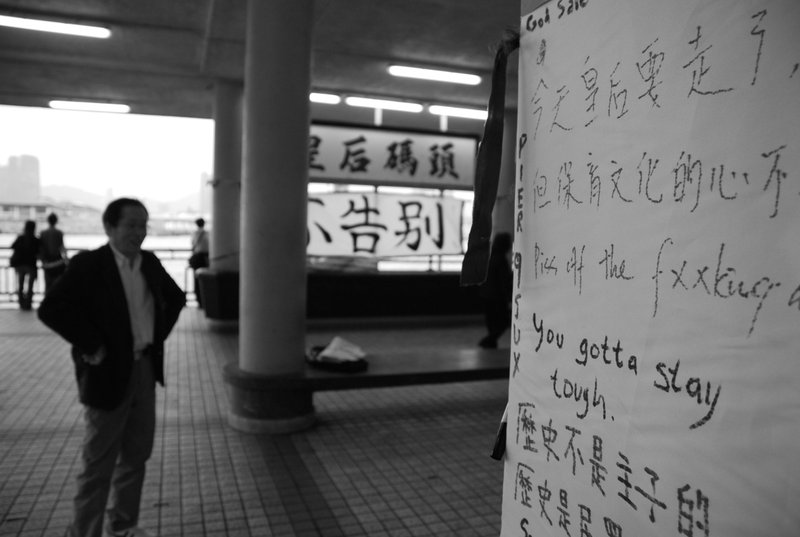 皇后碼頭
不告別
God Save
今天皇后要走了,
但保育文化的心不
Piss off the fxxking
You gotta stay
tough.
歷史不是主子的
歷史是
PIER 9 SUX